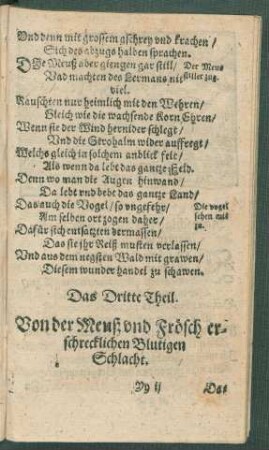 Vnd denn mit grossem gschrey vnd krachen /
Sich des abzugs halden sprachen.
Die Meuß aber giengen gar still /
Der Meus stiller zug.
Vnd machten des Lermans nit viel.
Rauschten nur heimlich mit den Wehren /
Gleich wie die wachsende Korn Ehren /
Wenn sie der Wind hernider schlegt /
Vnd die Strohalm wider auffregt /
Welchs gleich in solchem anblick seie /
Als wenn da lebt das gantze Feld.
Denn wo man die Augen hinwand /
Da lebt vnd bebt das gantze Land /
Das auch die Vogel / so vngefehr /
Die vogel sehen auch zu.
Am selben ort zogen daher /
Dafür sich entsatzten dermassen /
Das sie jhr Reiß musten verlassen /
Vnd aus dem negsten Wald mit grawen /
Diesem wunder handel zu schawen.
Das Dritte Theil.
Von der Meuß vnd Frösch er-
schrecklichen Blutigen
Schlacht.
Yy ij
Das